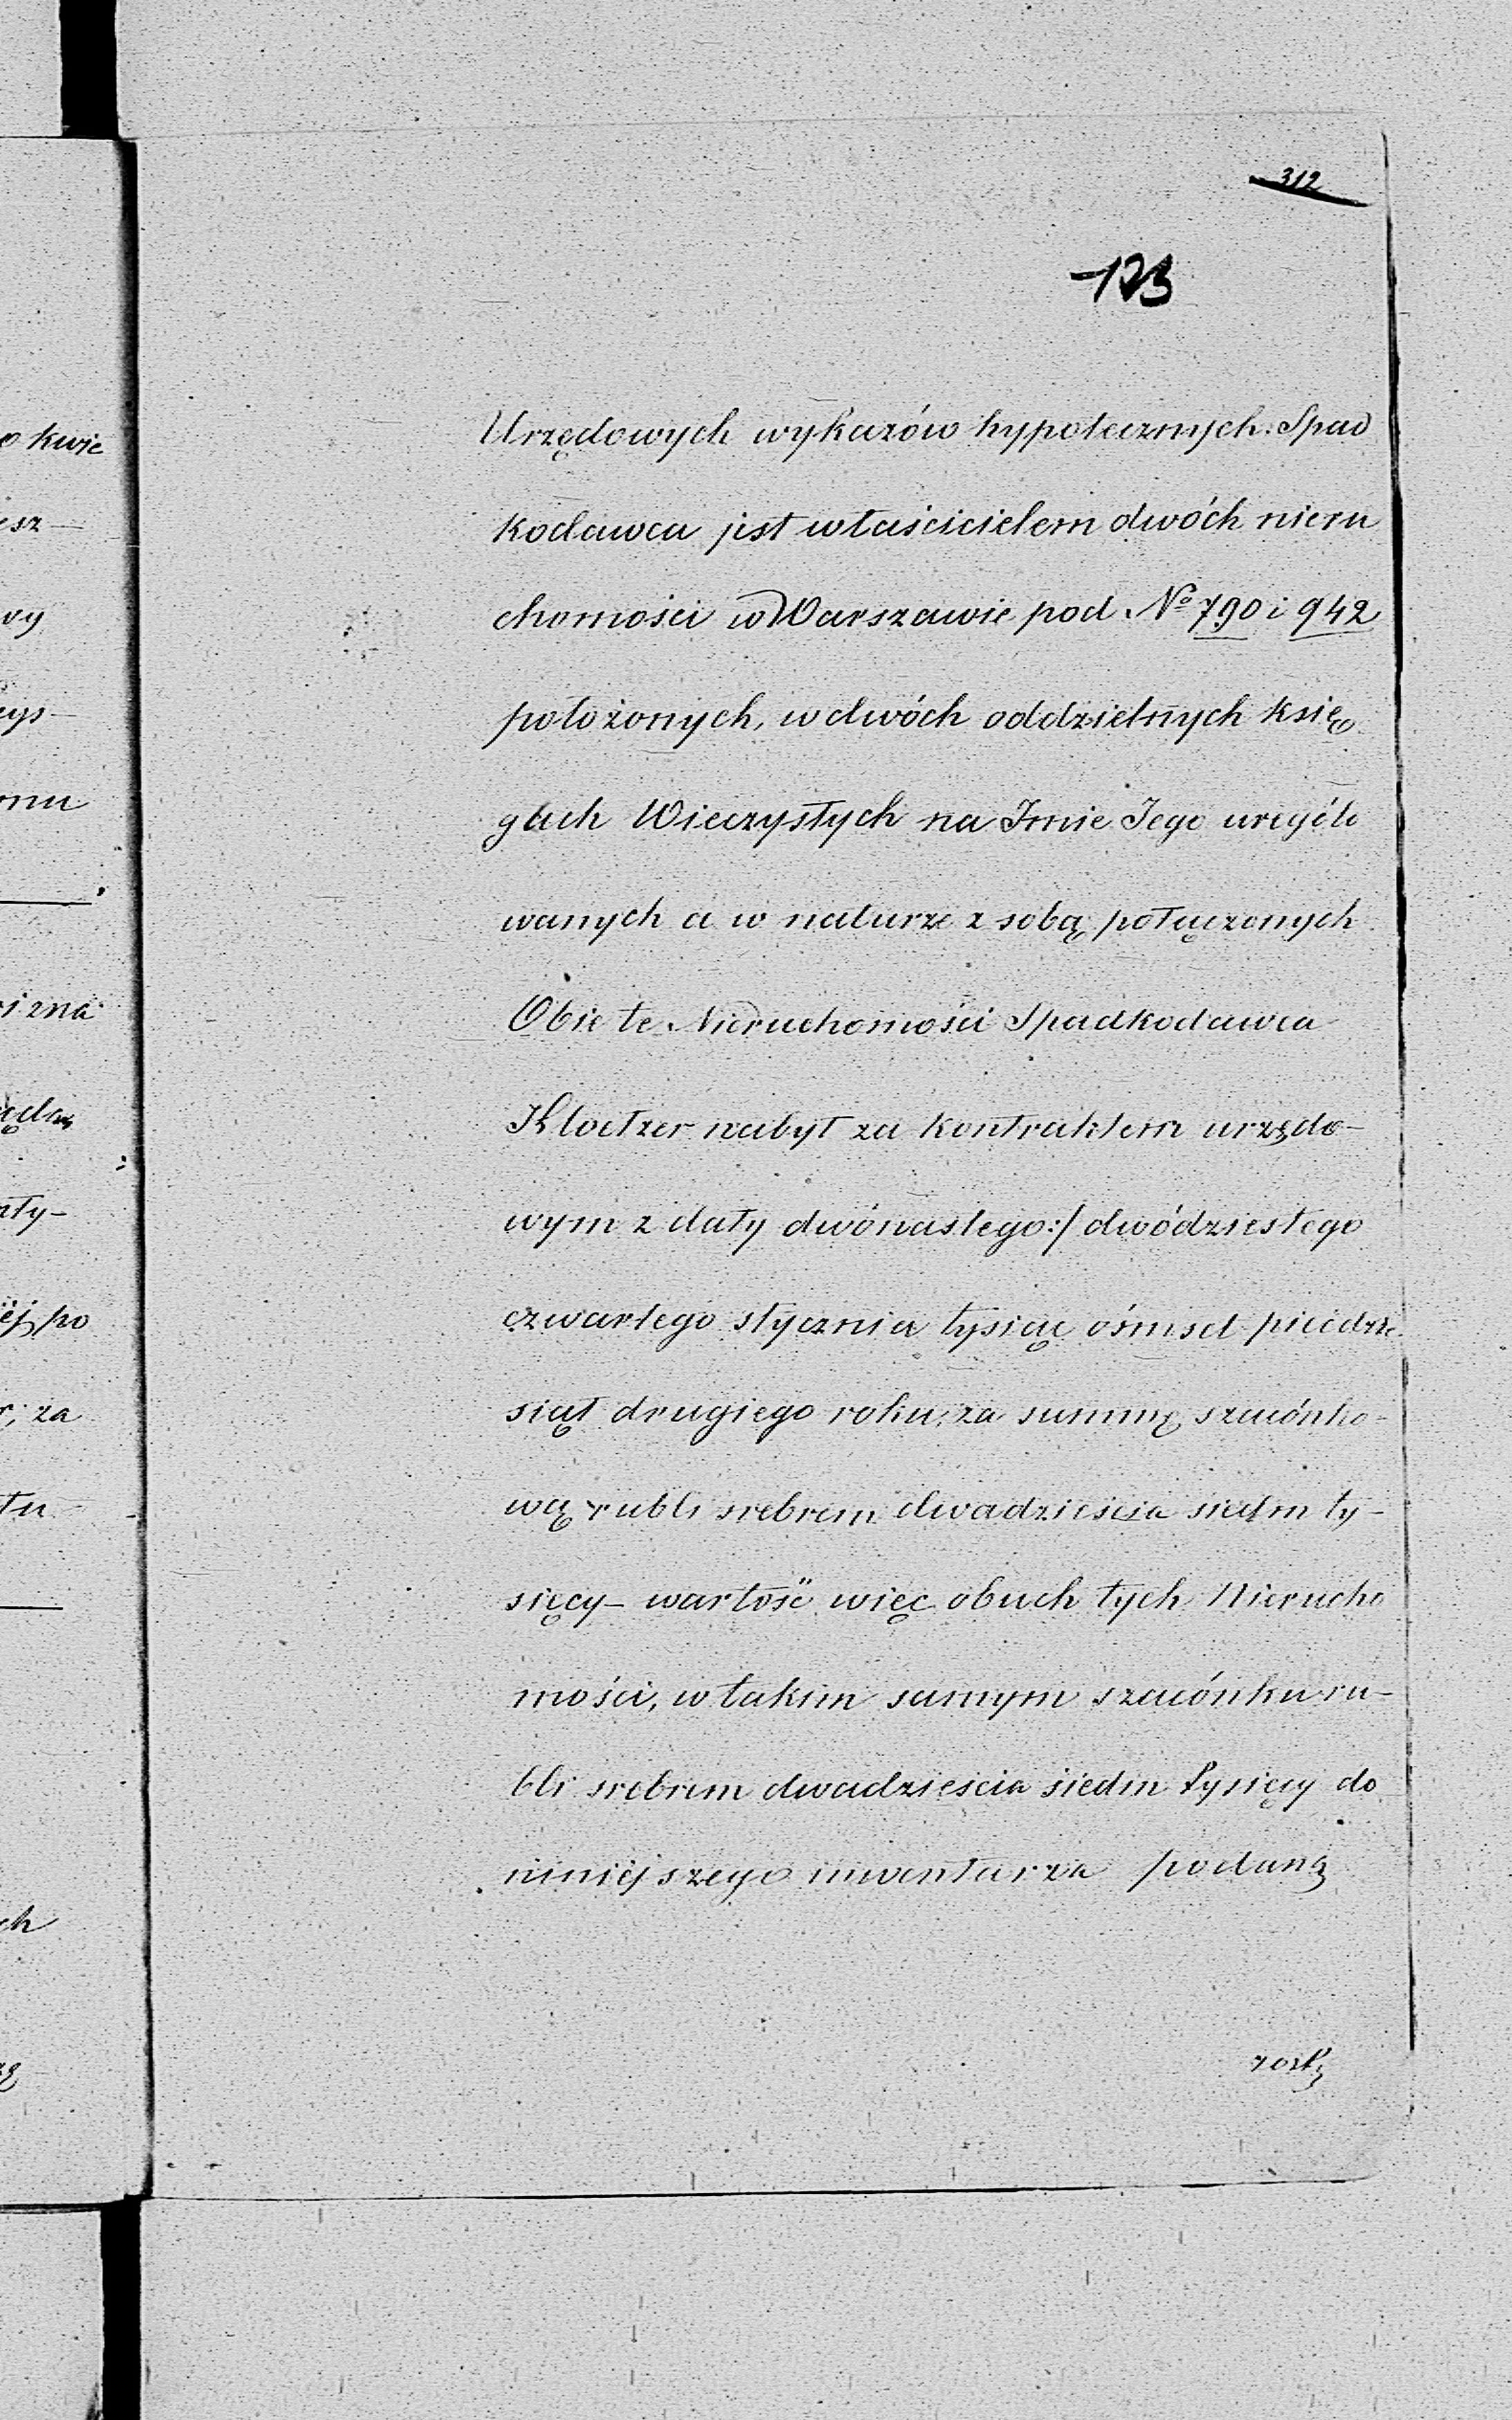 312
123
Urzędowych wykazów hypotecznych. Spad
kodawca jest właścicielem dwóch nieru
chomości w Warszawie pod No 790 i 942
położonych, w dwóch oddzielnych Księ
gach Wieczystych na Imie Jego urególo
wanych a w naturze z sobą połączonych
Obie te Nieruchomości Spadkodawca
Kloetzer nabył za Kontraktem urzędo-
wym z daty dwónastego:/ dwódziestego
czwartego stycznia tysiąc ośmset piedzie
siąt drugiego roku, za summę szacónko-
wą rubli srebrem dwadzieścia siedm ty-
sięcy – wartość więc obuch tych Nierucho
mości, w takim samym szacónku ru-
bli srebrem dwadzieścia siedm Tysięcy do
niniejszego inwentarza podaną
o kwie
esz-
wy
omu
i zna
aty-
ej po
r, za
tu
ch